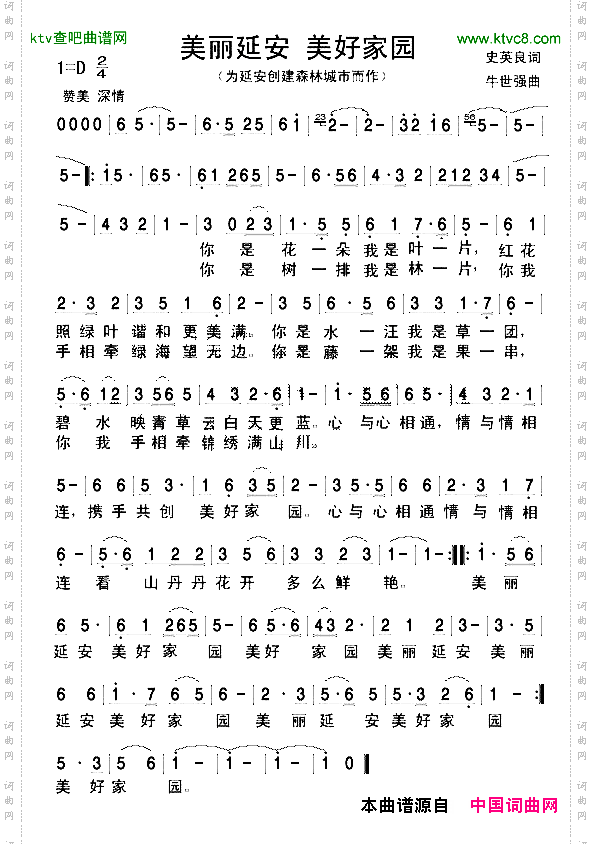 ktv查吧曲谱网
www.ktvc8.com
美丽延安 美好家园
(为延安创建森林城市而作)
史英良词
牛世强曲
1=D 2/4
赞美 深情
0000 | 6 5· | 5 - | 6·5 | 0254 | 301 | 2 - | 2 - | 032 016 | 5 -
5 - |: 15· | 65· | 61 265 | 5 - | 6·56 | 4·32 | 212 34 | 5 -
5 - | 4 3 2 | 1 - | 3 0 23 | 1· 5 5 | 6 1 7·6 | 5 - | 6 1
你 是 花 一 朵 我 是 叶 一 片, 红 花
你 是 树 一 排 我 是 林 一 片, 你 我
2·3 2 | 3 5 1 6 | 2 - | 2 3 5 | 6·5 6 | 5 3 2 3 | 1·7 | 6 -
照绿叶谐和更美满。你是水一汪我是草一团,
手相牵绿海望无边。你是藤一架我是果一串,
碧水映青草云白天更蓝。心与心相通,情与情相
你我手相牵锦绣满山川。
5 - | 6 6 | 5 3· | 1 6 35 | 2 - | 3 5·5 | 6 6 | 2·3 | 3 1 7
连,携手共创美好家园。心与心相通情与情相
6 - | 5·6 | 1 2 2 | 3 2 3 | 2 1 2 | 3 5 | 1 - | 1 - :||: 1· 56
连看山丹丹花开多么鲜艳。美丽
6 5· | 6 1 2 | 265 | 5 - | 6·5 6 | 43 2· | 2 1 2 | 5 5 3
延安美好家园美好家园美丽延安美丽
6 6 | 1·7 6 5 | 6 - | 5 3 | 2 3· | 5·3 2 6 | 1 - :|
延安美好家园美丽延安美好家园
5· | 3 5 5 6 | 1 - | 1 - | 1 - | 1 0 ‖
美好家园。
本曲谱源自 中国词曲网
词曲网